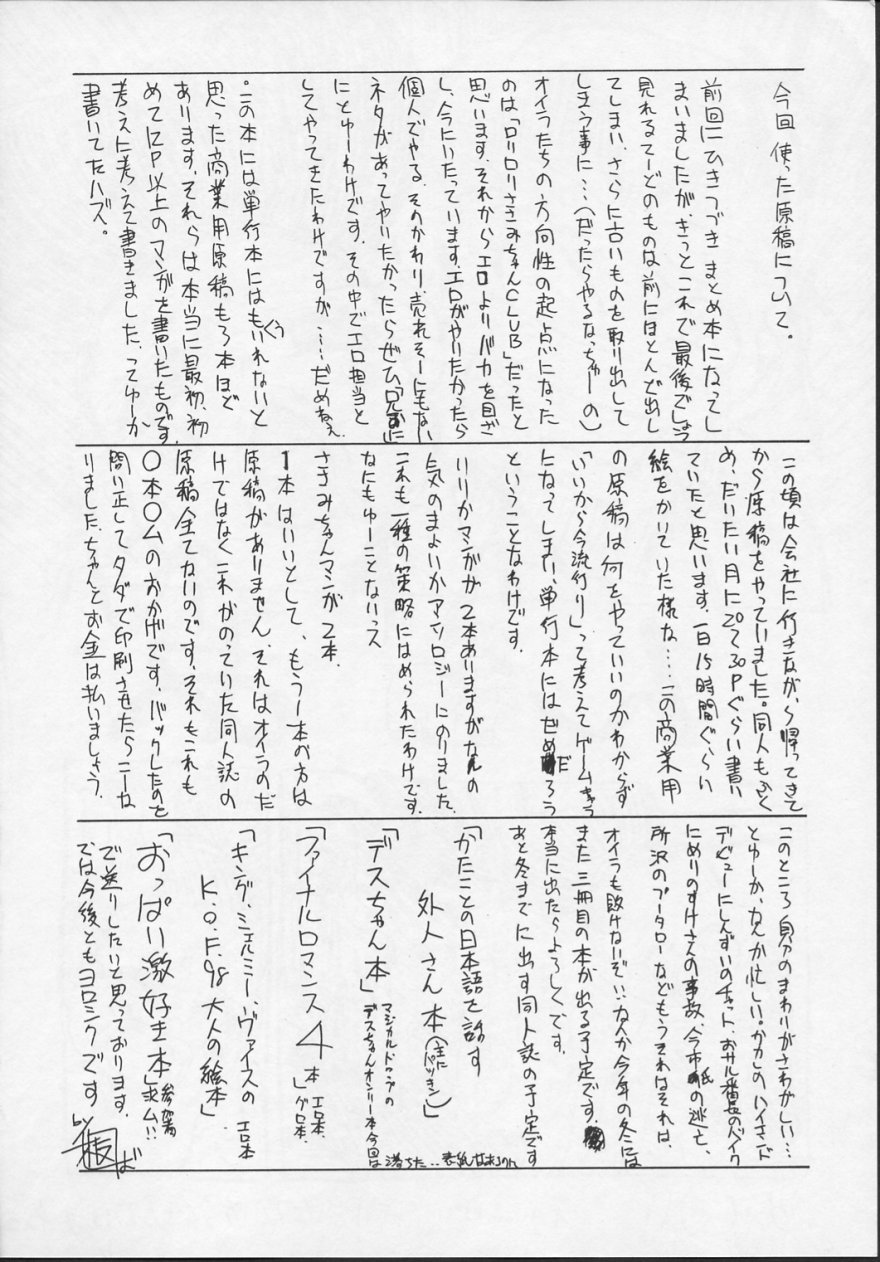 今回使った原稿について。
前回にひきつづきまとめ本になってし
まいましたが、きっとこれで最後でしょう
見れるてーどのものは前にほとんど出し
てしまい、さらに古いものを取り出して
しまう事に…(だったらやるなっちゅーの)
オイラたちの方向性の起点になった
のは「ロリロリさきみちゃんCLUB」だったと
思います。それからエロよりバカを目ざ
し、今にいたっています。エロがやりたかったら
個人でやる、そのかわり、売れそーにもない
ネタがあってやりたかったらぜひ
にとゆーわけです。その中でエロ担当と
してやってきたわけですが……だめねえ
・この本には単行本にはもういれないと
思った商業用原稿も3本ほど
あります。それらは本当に最初、初
めて12P以上のマンガを書いたものです
考えに考えて書きました、ってゆーか
書いてたハズ。
この頃は会社に行きながら帰ってきて
から原稿をやっていました。同人もふく
め、だいたい月に20〜30Pぐらい書い
ていたと思います。一日15時間ぐらい
絵をかいていた様な…この商業用
の原稿は何をやっていいのかわからず
「いいから今流行り」って考えてゲームキャラ
になってしまい、単行本にはだめだろう
ということなわけです。
りりかマンガが2本ありますがなんの
気のまよいかアンソロジーにのりました
これも一種の策略にはめられたわけです。
なにもゆーことないっス
さきみちゃんマンガ2本、
1本はいいとして、もう1本の方は
原稿がありません、それはオイラのだ
けではなくこれがのっていた同人誌の
原稿全てないのです。それもこれも
○本○ムのおかげです。バックしたのを
問い正してタダで印刷させたらこーな
りました。ちゃんとお金は払いましょう。
このところ自分のまわりがさわがしい…
とゆーか、なんか忙しい。かかしのハイエンド
デビューにしんずいのチャット、おサル番長のバイク
にめりのすけさんの事故、今市の逃亡、
所沢のプータローなどもうそれはそれは、
オイラも敗けないぞい:なんか今年の冬には
また三冊目の本が出る予定です。
本当に出たらよろしくです。
あと冬までに出す同人誌の予定です
「かたことの日本語を話す
外人さん本(主にパツキン)」
「デスちゃん本」マジカルドロップの
デスちゃんオンリー本 今回は落ちた‥
「ファイナルロマンス4本」エロ本、
グロ本、
「キング、シェルミー、ヴァイスの エロ本
K.O.F.98 大人の絵本」
「おっぱい激好き本」参加者
求ム!!
で送りしたいと思っております。
では今後ともヨロシクです by